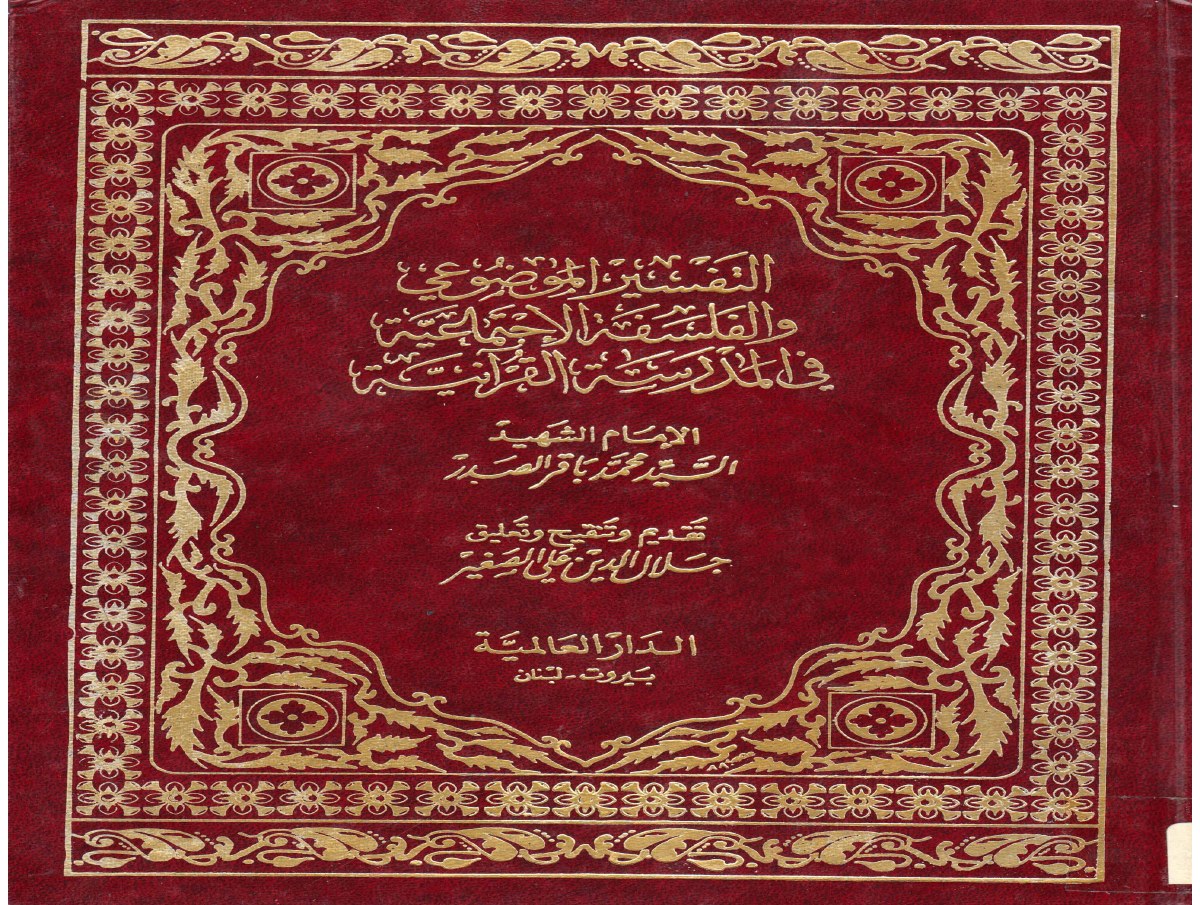 التفسير الموضوعي
والفلسفة الإجتماعية
في المدرسة القرآنية
الإمام الشهيد
السيد محمد باقر الصدر
تقديم وتنقيح وتعليق
جلال الدين علي الصغير
الدار العالمية
بيروت - لبنان